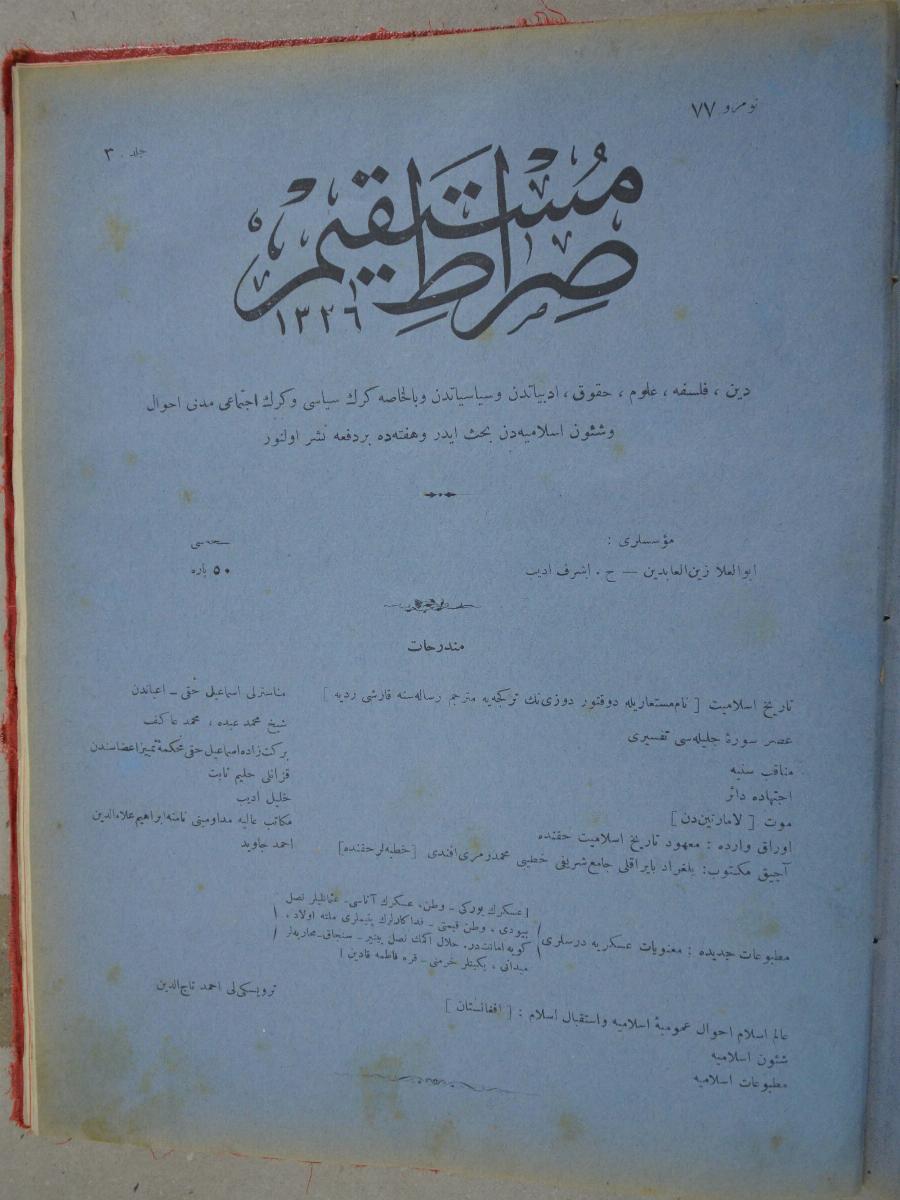 نومرو ۷۷
جلد ۳
صِراطِ مُستقیم
۱۳۲٦
دین ، فلسفه ، علوم ، حقوق ، ادبیاتدن وسیاسیاتدن وبالخاصه كرك سیاسی وكرك اجتماعی مدنی احوال
وشئون اسلامیه‌دن بحث ایدر وهفته‌ده بردفعه نشر اولنور
مؤسسلری :
ابوالعلا زین‌العابدین — ح . اشرف ادیب
نسخه‌سی
۵۰ پاره
مندرجات
تاریخ اسلامیت [ نام‌مستعاریله دوقتور دوزی‌نك تركجه‌یه مترجم رساله‌سنه قارشی ردیه ] مناسترلی اسماعیل حقی ــ اعیاندن
عصر سورۀ جلیله‌سی تفسیری شیخ محمد عبده ، محمد عاكف
مناقب سنیه بركت‌زاده‌اسماعیل حقی محكمۀ‌تمییز‌اعضاسندن
اجتهاده دائر قزانلی حلیم ثابت
موت [ لامارتین‌دن ] خلیل ادیب
اوراق وارده : معهود تاریخ اسلامیت حقنده مكاتب عالیه مداومینی نامنه‌ابراهیم علاءالدین
آجیق مكتوب: بلغراد بایراقلی جامع‌شریفی خطیبی محمدرمزی‌افندی [خطبه‌لرحقنده] احمد جاوید
مطبوعات جدیده : معنویات عسكریه درسلری
[ عسكرك یوركی ــ وطن، عسكرك آناسی ــ عثمانلیلر نصل
بیودی ، وطن قیمتی ــ فداكارلرك یتیملری ملته اولاد ،
كویه امانتدر. حلال اكمك نصل ینیر ــ سنجاق ــ محاربه‌لر
میدانی ، یكیتلر خرمنی ــ قره فاطمه قادین ]
عالم اسلام احوال عمومیۀ اسلامیه واستقبال اسلام : [ افغانستان ] ترویسكی‌لی احمد تاج‌الدین
شئون اسلامیه
مطبوعات اسلامیه